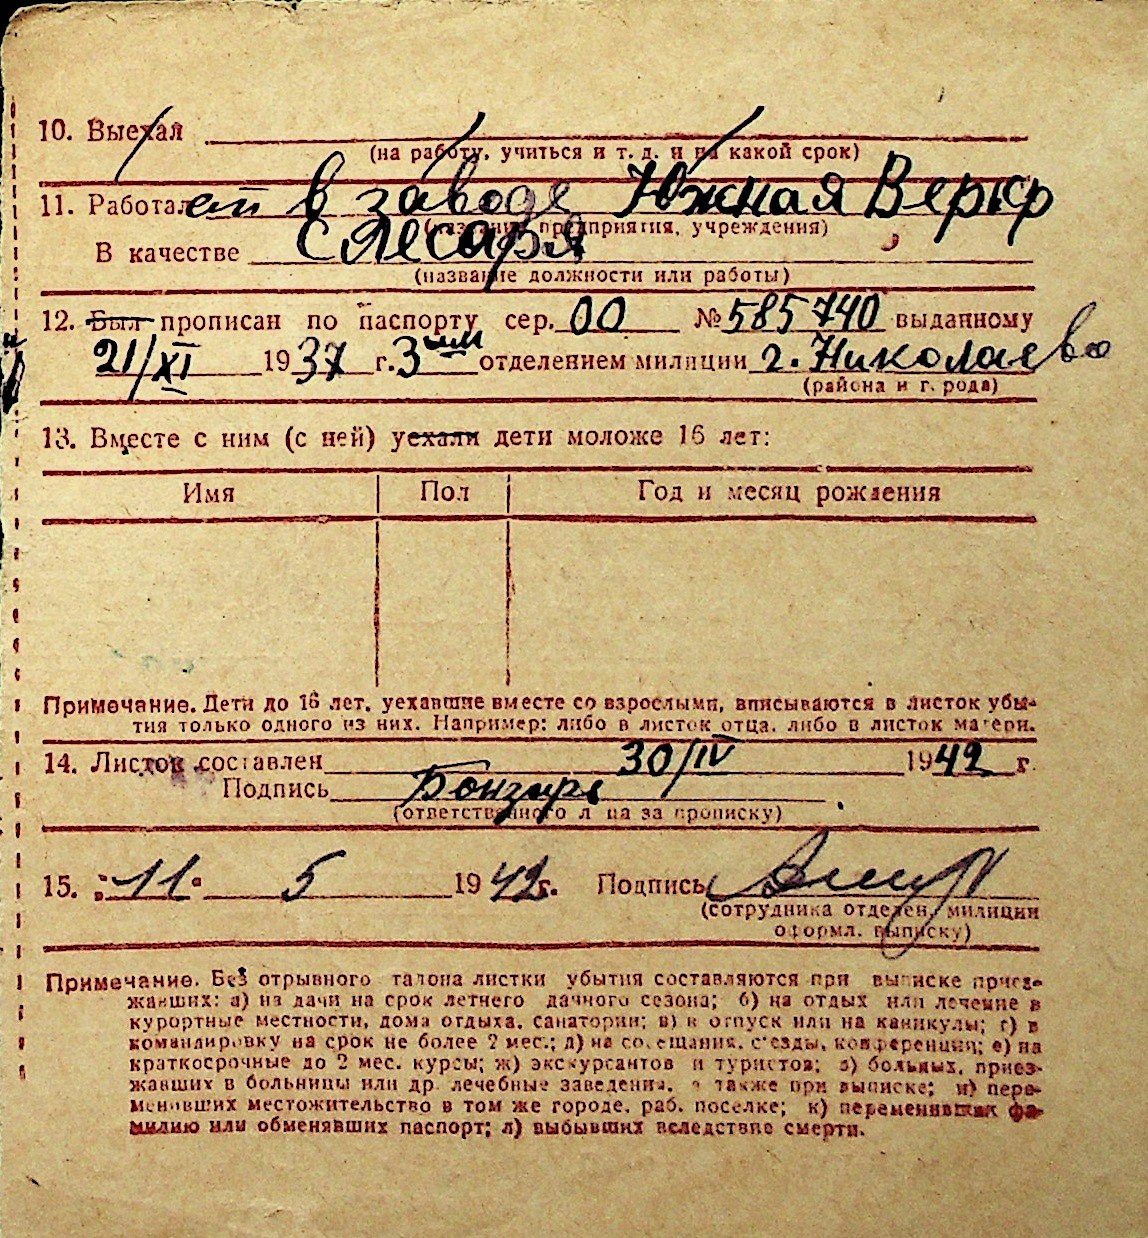 10. Выехал
(на работу, учиться и т. д. и на какой срок)
11. Работает в заводе Южная Верф
(название предприятия, учреждения)
В качестве слесаря
(название должности или работы)
12. Был прописан по паспорту сер. 00 № 585740 выданному
21/XI 1937 г. 3им отделением милиции г. Николаево
(района и города)
13. Вместе с ним (с ней) уехали дети моложе 16 лет:
Имя Пол Год и месяц рождения
Примечание. Дети до 16 лет, уехавшие вместе со взрослыми, вписываются в листок убы-
тия только одного из них. Например: либо в листок отца, либо в листок матери.
14. Листок составлен 30/IV 1942 г.
Подпись
(ответственного лица за прописку)
15. "11" 5 1942 г. Подпись
(сотрудника отделен. милиции
оформл. выписку)
Примечание. Без отрывного талона листки убытия составляются при выписке приез-
жавших: а) на дачи на срок летнего дачного сезона; б) на отдых или лечение в
курортные местности, дома отдыха, санатории; в) в отпуск или на каникулы; г) в
командировку на срок не более 2 мес.; д) на совещания, съезды, конференции; е) на
краткосрочные до 2 мес. курсы; ж) экскурсантов и туристов; з) больных, приез-
жавших в больницы или др. лечебные заведения, а также при выписке; и) пере-
менивших местожительство в том же городе, раб. поселке; к) переменивших фа-
милию или обменявших паспорт; л) выбывших вследствие смерти.